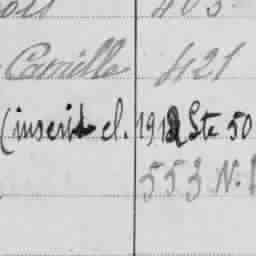 403
Camille 421
(inscrit cl. 1912 Ste 50
553 N.